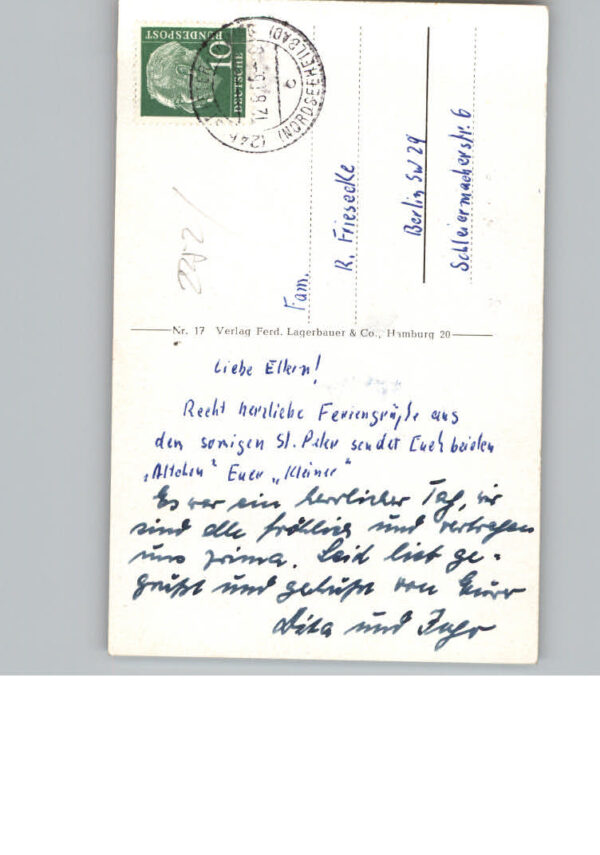 DEUTSCHE
BUNDESPOST
10
(24b
(NORDSEEHEILBAD)
12.8.
Fam.
R. Friesecke
Berlin SW 29
Schleiermacherstr. 6
2252
Nr. 17 Verlag Ferd. Lagerbauer & Co., Hamburg 20
Liebe Eltern!
Recht herzliche Feriengrüße aus
dem sonnigen St. Peter sendet Euch beiden
„Altchen“ Euer „Kleiner“
Es war ein herrlicher Tag, wir
sind alle fröhlich und vertragen
uns prima. Seid lieb ge-
grüßt und geküßt von Eurer
Dita und